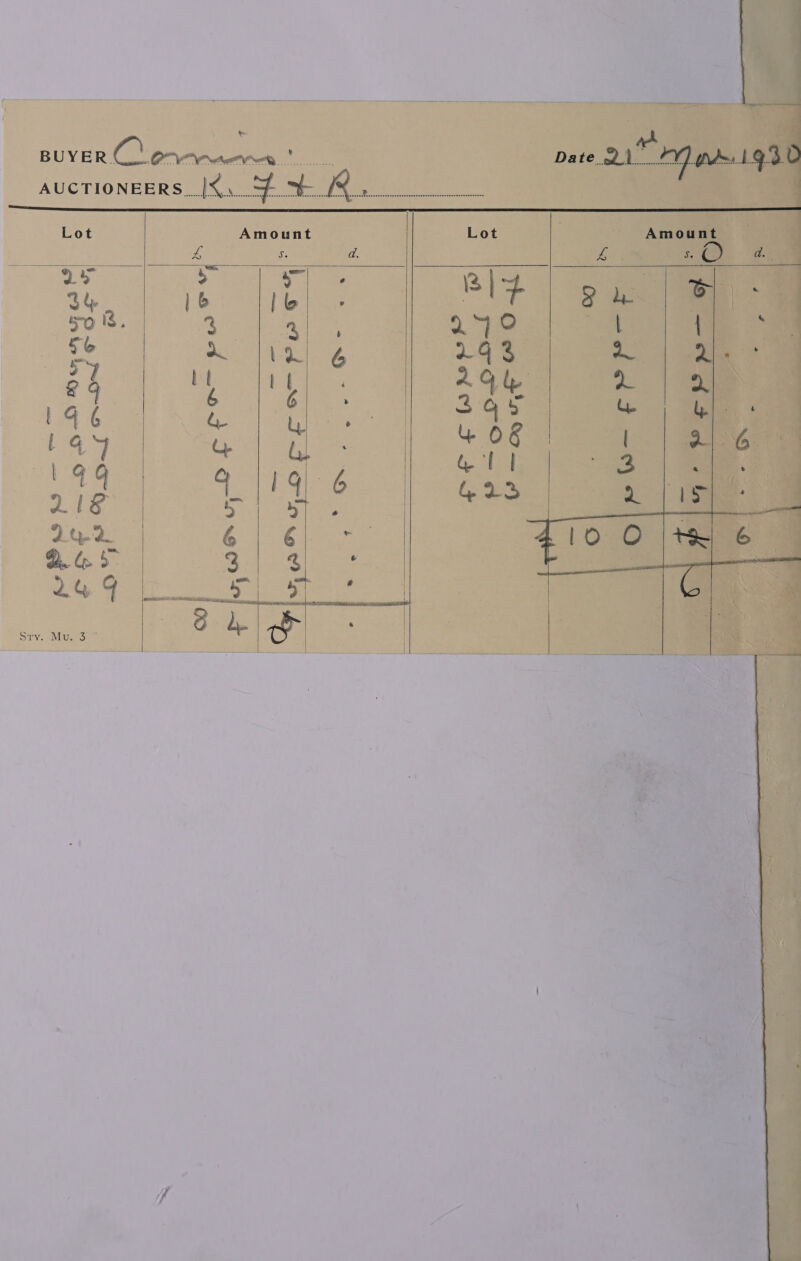 BUYER Connors
Date 21st Mar. 1930
AUCTIONEERS K. F + R.
Lot Amount
£ s. d.
25 5 5 .
34 16 16 .
50B. 3 3 .
56 2 12 6
57 11 11 .
89 6 6 .
196 4 4 .
197 4 4 .
199 9 19 6
218 5 5 .
242 6 6 .
245 3 3 .
249 5 5 .
84 .
Lot Amount
£ s. d.
B/F 84 0 .
270 1 1 .
293 2 2 .
294 2 2
395 4 4 .
408 1 2 6
411 3 . .
423 2 15 .
£100 6 6
Srv. Mu. 3